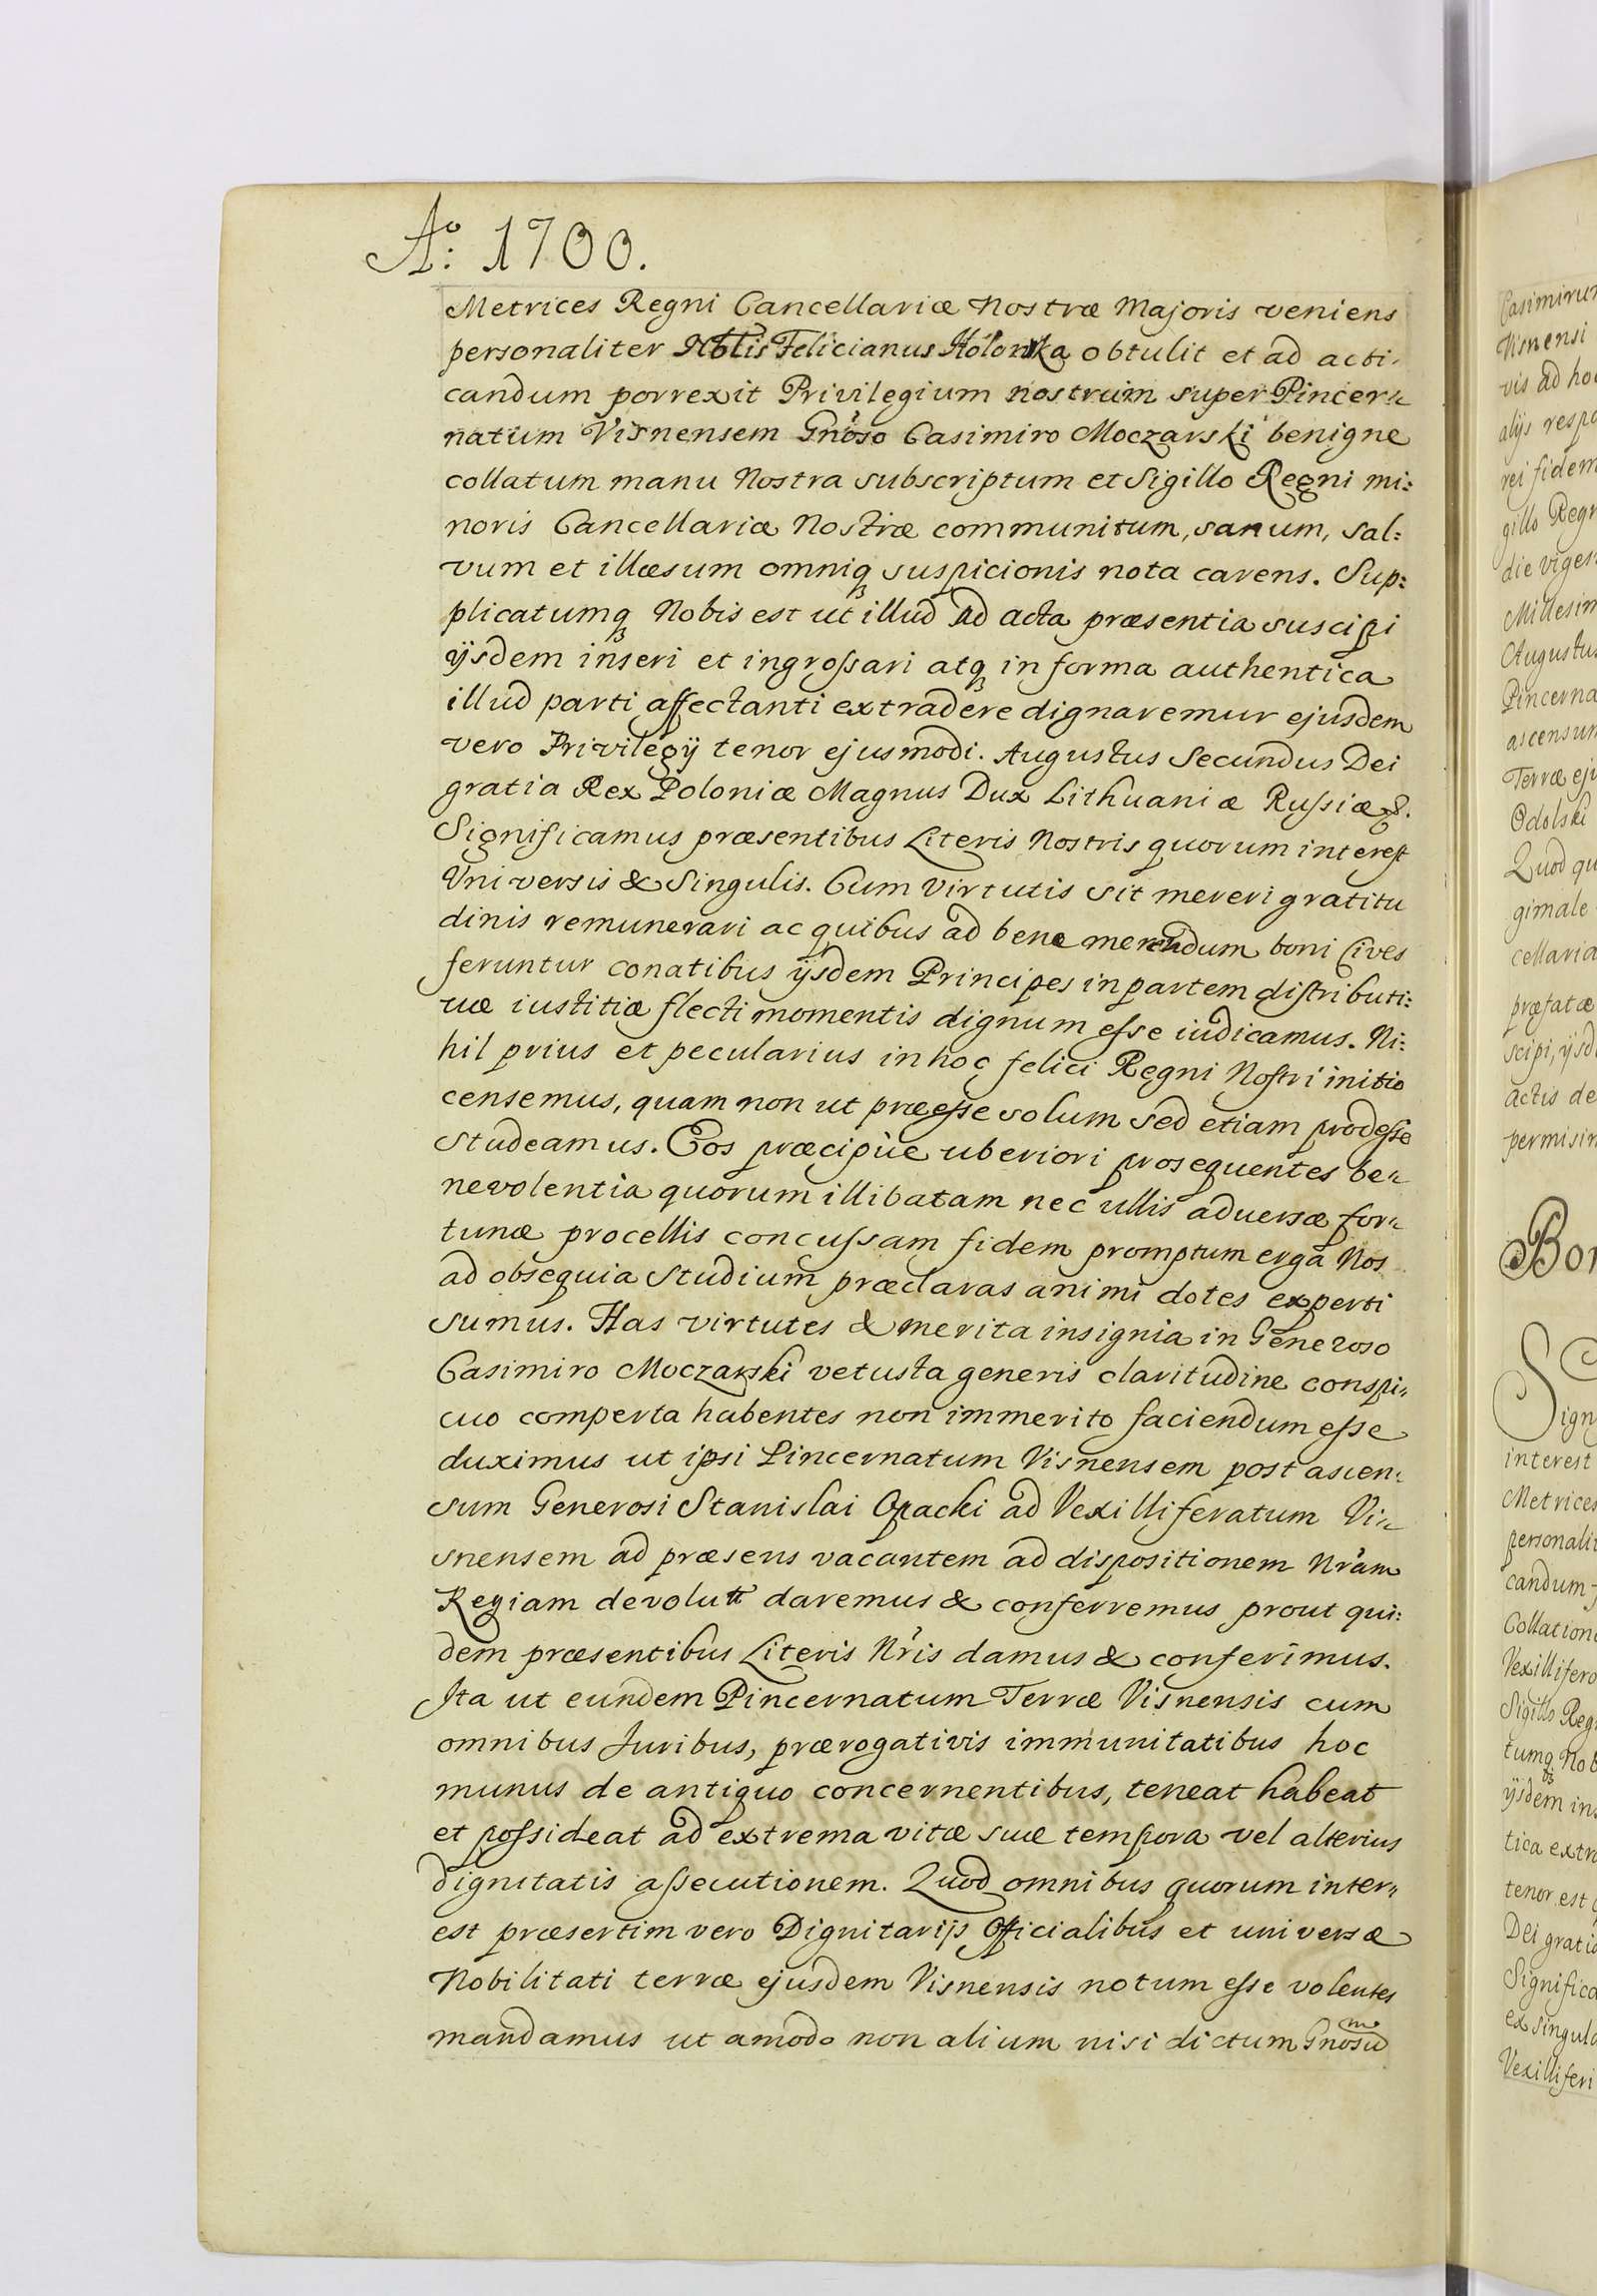 Aº: 1700.
Metrices Regni Cancellariæ Nostræ Majoris veniens
personaliter Nblis Felicianus Holonka obtulit et ad acti-
candum porrexit Privilegium nostrum super Pincer-
natum Visnensem Gnoso Casimiro Moczarski benigne
collatum manu Nostra subscriptum et Sigillo Regni mi:
noris Cancellariæ Nostræ communitum, sanum, sal:
vum et illæsum omniq suspicionis nota carens. Sup:
plicatumq Nobis est ut illud ad acta præsentia suscipi
ijsdem inseri et ingroſsari atq in forma authentica
illud parti affectanti extradere dignaremur ejusdem
vero Privilegij tenor ejusmodi. Augustus Secundus Dei
gratia Rex Poloniæ Magnus Dux Lithuaniæ Ruſsiæ &.
Significamus præsentibus Literis Nostris quorum interest
Universis & Singulis. Cum Virtutis sit mereri gratitu
dinis remunerari ac quibus ad bene merendum boni Cives
feruntur conatibus ijsdem Principes in partem distributi:
uæ iustitiæ flecti momentis dignum eſse iudicamus. Ni:
hil prius et pecularius in hoc felici Regni Nostri initio
censemus, quam non ut præeſse solum sed etiam prodeſse
studeamus. Eos præcipue uberiori prosequentes be-
nevolentia quorum illibatam nec ullis aduersæ for-
tunæ procellis concuſsam fidem promptum erga Nos
ad obsequia studium præclaras animi dotes experti
sumus. Has virtutes & merita insignia in Generoso
Casimiro Moczarski vetusta generis claritudine conspi-
cuo comperta habentes non immerito faciendum eſse
duximus ut ipsi Pincernatum Visnensem post ascen-
sum Generosi Stanislai Opacki ad Vexilliferatum Vi-
snensem ad præsens vacantem ad dispositionem Nram
Regiam devolutt daremus & conferremus prout qui:
dem præsentibus Literis Nris damus & conferimus.
Ita ut eundem Pincernatum Terræ Visnensis cum
omnibus Juribus, prærogativis immunitatibus hoc
munus de antiquo concernentibus, teneat habeat
et poſsideat ad extrema vitæ suæ tempora vel alterius
dignitatis aſsecutionem. Quod omnibus quorum inter-
est præsertim vero Dignitarijs Officialibus et universæ
Nobilitati terræ ejusdem Visnensis notum eſse volentes
mandamus ut amodo non alium nisi dictum Gnosum
Casimirum
Visnensi
vis ad hoc
alijs resp
rei fidem
gillo Regn
die viges
Millesim
Augustus
Pincerna
ascensum
Terræ ej
Odolski
Quod qu
gimale
cellaria
præfatæ
scipi, ijsd
actis de
permisim
Bon
Sign
interest
Metrices
personalit
candum
Collation
Vexillifero
Sigillo Reg
tumq Nob
ijsdem ins
tica extr
tenor est
Dei gratia
Significa
et singul
Vexilliferi